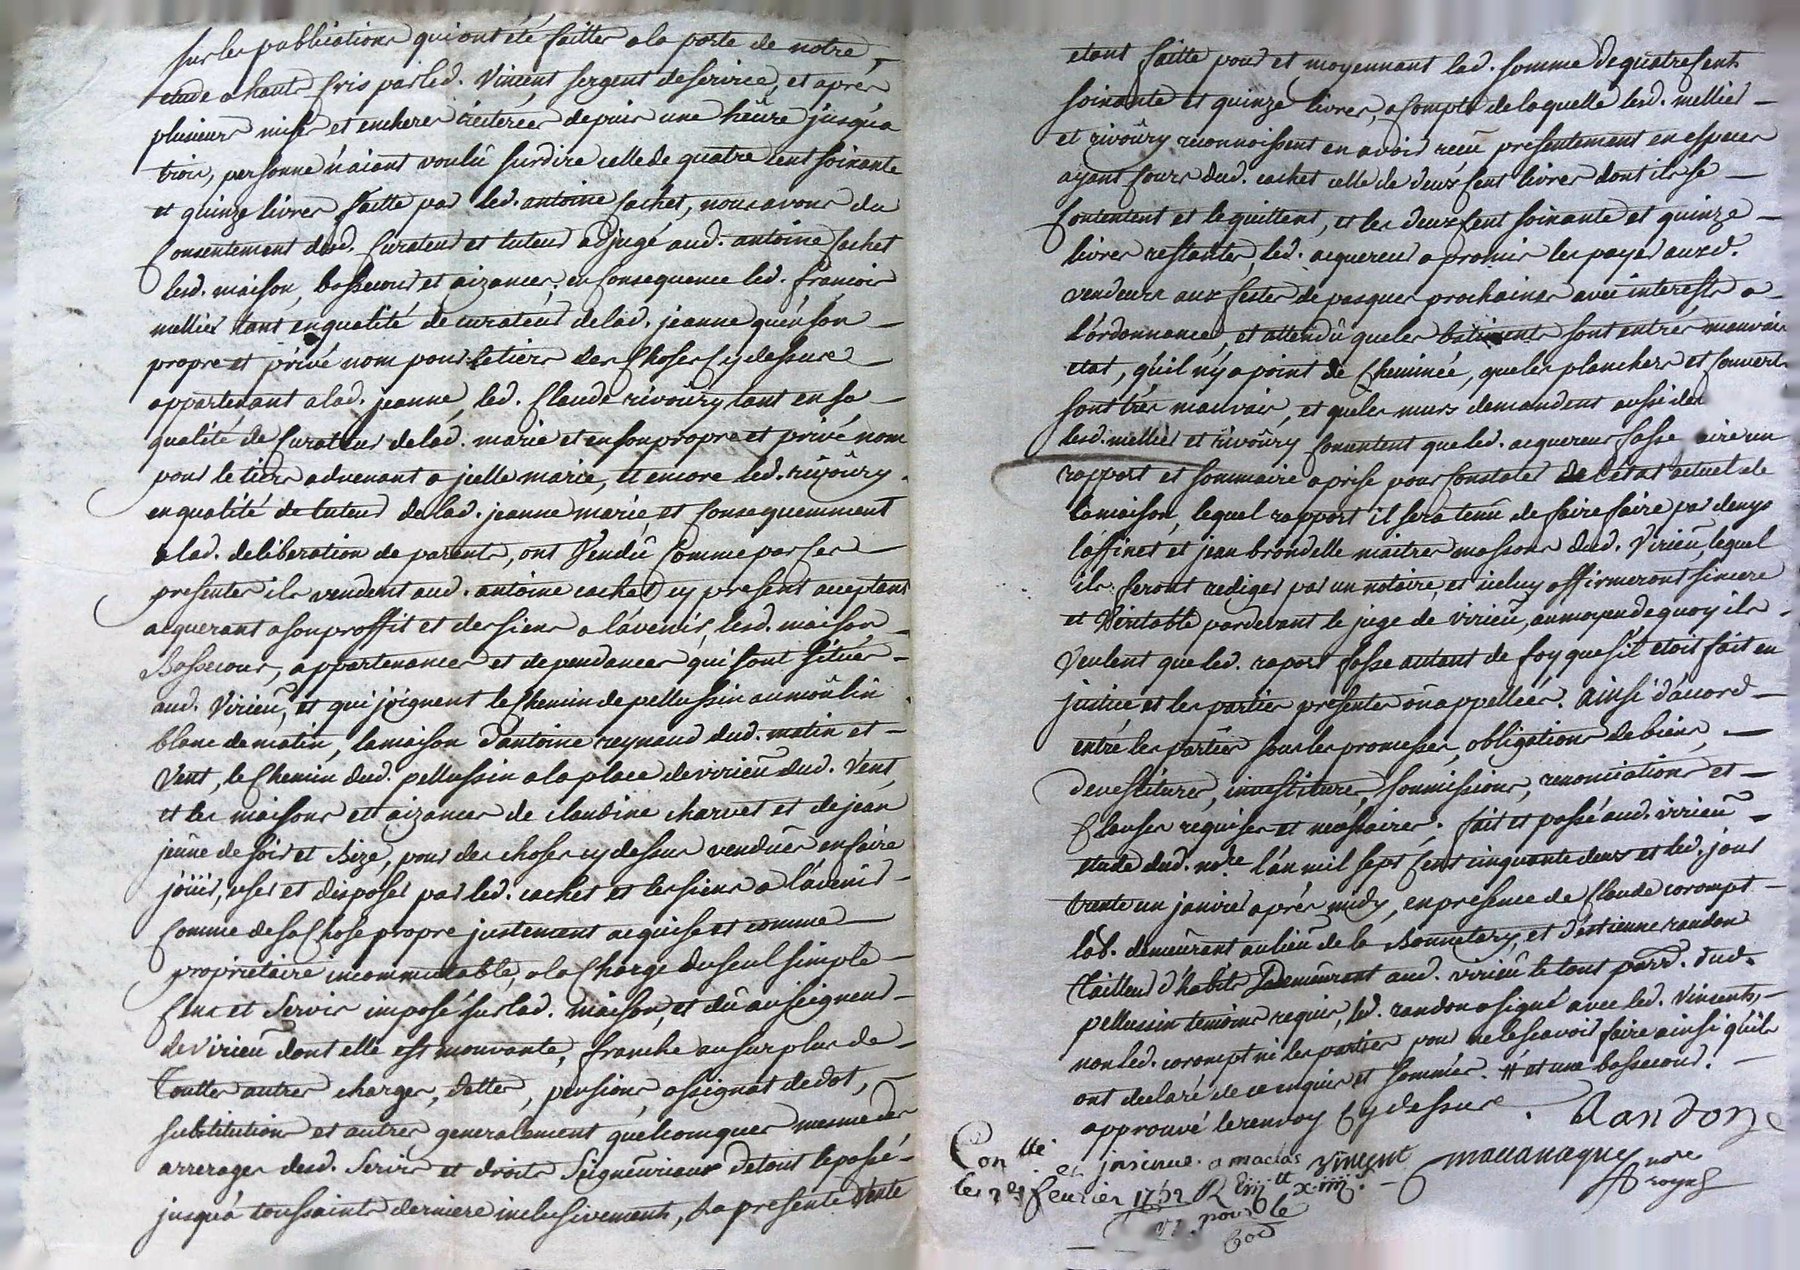 sur les publications qui ont été faittes a la porte de notre
etude a haute cris par led. Vincent sergent de service, et aprés
plusieurs mises et encheres réiterées depuis une heûre jusqu'a
trois, personne n'aiant voulû surdire celle de quatre cent soixante
et quinze livres faitte par led. antoine cachet, nous avons du
Consentement desd. Curateur et tuteur adjugé aud. antoine Cachet
lesd. maison, bassecour et aizances; en consequence led. françois
mellier tant en qualité de curateur de lad. jeanne qu'en son
propre et privé nom pour le tiers des Choses Cy dessus
appartenant a lad. jeanne, led. Claude rivoûry tant en sa
qualité de Curateur de lad. marie et en son propre et privé nom
pour le tiers advenant a jcelle marie, et encore led. rivoûry
en qualité de tuteur de lad. jeanne marie, et Consequemment
a lad. deliberation de parents, ont Vendû Comme par Ces
presentes ils vendent aud. antoine cachet cy present aceptant
acquerant a son proffit et des siens a l'avenir, lesd. maison
Bassecour, appartenances et dependances qui sont situés
aud. Virieû, et qui joignent le Chemin de pellussin au moûlin
blanc de matin, la maison d'antoine reynaud dud. matin et
Vent, le Chemin dud. pellussin a la place de virieû dud. Vent,
et les maisons et aizances de claudine charvet et de jean
jeûne de soir et Bize, pour des choses cy dessus vendûes en faire
joüir, user et disposer par led. cachet et les siens a l'avenir
Comme de sa Chose propre justement acquise et comme
proprietaire incommutable, a la Charge du seul simple
Cens et Servis imposé sur lad. maison, et dû au seigneur
de virieû dont elle est mouvante, franche au surplus de
Touttes autres charges, dettes, pensions, assignat de dot,
substitutions et autres generalement quelconques mesme des
arrerages desd. Servis et droits Seigneuriaux de tout le passé
jusqu'a toussaints derniere inclusivement, La presente Vente
etant faitte pour et moyennant lad. somme de quatre Cent
soixante et quinze livres, a Compte de laquelle lesd. mellier
et rivoûry reconnoissent en avoir reçû presentement en especes
ayant Cours dud. cachet celle de deux Cent livres dont ils se
Contentent et le quittent, et les deux Cent soixante et quinze
livres restantes, led. acquereur a promis les payer auxd.
vendeurs aux festes de pasques prochaines avec interests a
l'ordonnance, et attendû que les batiments sont en trés mauvais
etat, qu'il n'y a point de Cheminée, que les planchers et Couverts
sont trés mauvais, et que les murs demandent aussi
lesd. mellier et rivoûry Consentent que led. acquereur fasse faire un
rapport et sommaire a prise pour Constater de l'etat actuel de
la maison, lequel rapport il sera tenû de faire faire par denys
laffinet et jean brondelle maitres massons dud. Virieû, lequel
ils feront rediger par un notaire, et iceluy affirmeront sincere
et Veritable pardevant le juge de virieû, au moyen de quoy ils
Veulent que led. raport fasse autant de foy que s'il etoit fait en
justice et les parties presentes oû appellées. ainsi d'acord
entre les parties sous les promesses, obligations de biens,
devestitures, investitures, soumissions, renonciations et
Clauses requises et necessaires. fait et passé aud. virieû
etude dud. nore. l'an mil sept Cent cinquante deux et led. jour
trente un janvier aprés midy, en presence de Claude corompt
lab. demeûrant au lieû de la Bonnetary, et d'estienne randon
Tailleur d'habits Demeûrant aud. virieû le tout parr. dud.
pellussin temoins requis, led. randon a signé avec led. Vincent,
non led. corompt ni les parties pour ne le scavoir faire ainsi qu'ils
ont declaré de ce enquis et sommés. # et une bassecour.
approuvé le renvoy Cy dessus. Randon
Con.llé et jnsinué a maclas vincent
les fevrier 1752 R
nore royal
pour le